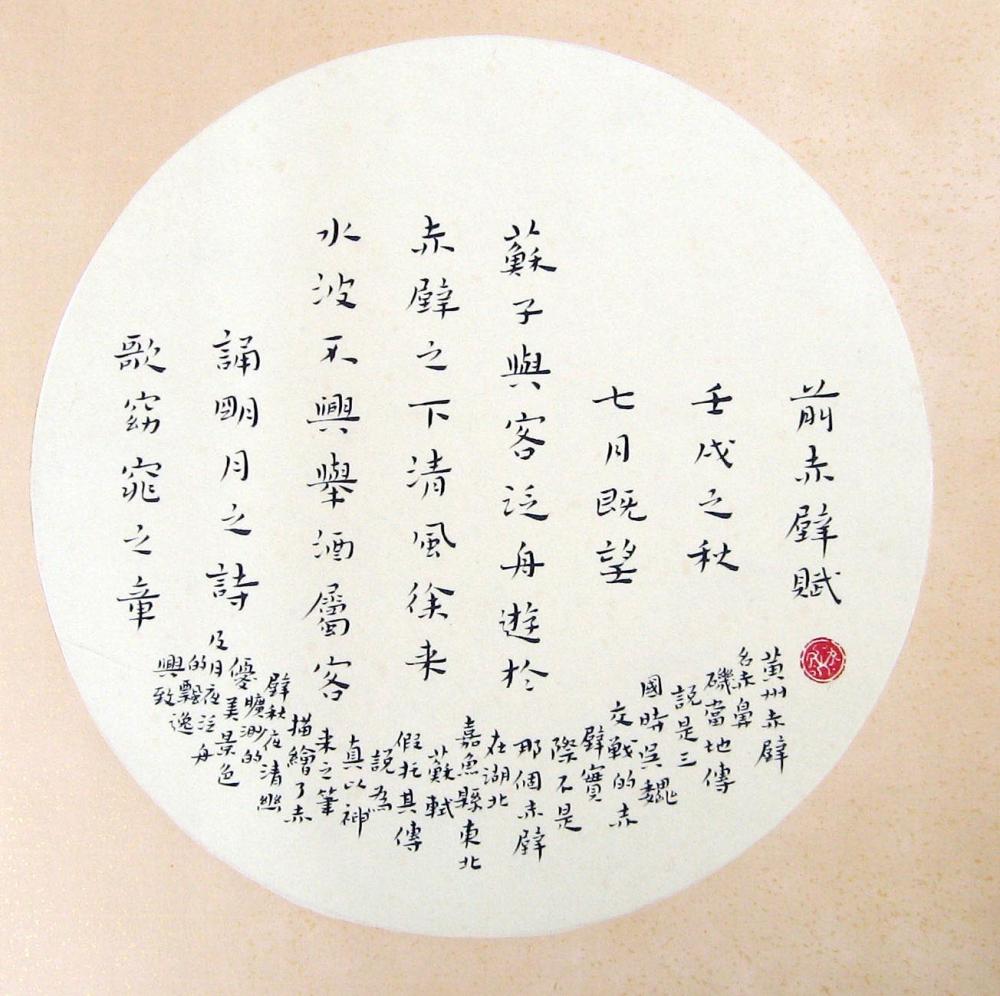 前赤壁賦
壬戌之秋
七月既望
蘇子與客泛舟遊於
赤壁之下清風徐来
水波不興舉酒屬客
誦明月之詩
歌窈窕之章
黄州赤壁
名赤鼻
磯當地傳
説是三
國時吳魏
交戰的赤
壁實
際不是
那個赤壁
在湖北
嘉魚縣東北
蘇軾
假托其傳
説為
真以神
来之筆
描繪了赤
壁秋夜清幽
曠渺的
優美景色
及月夜泛舟
的飄逸
興致